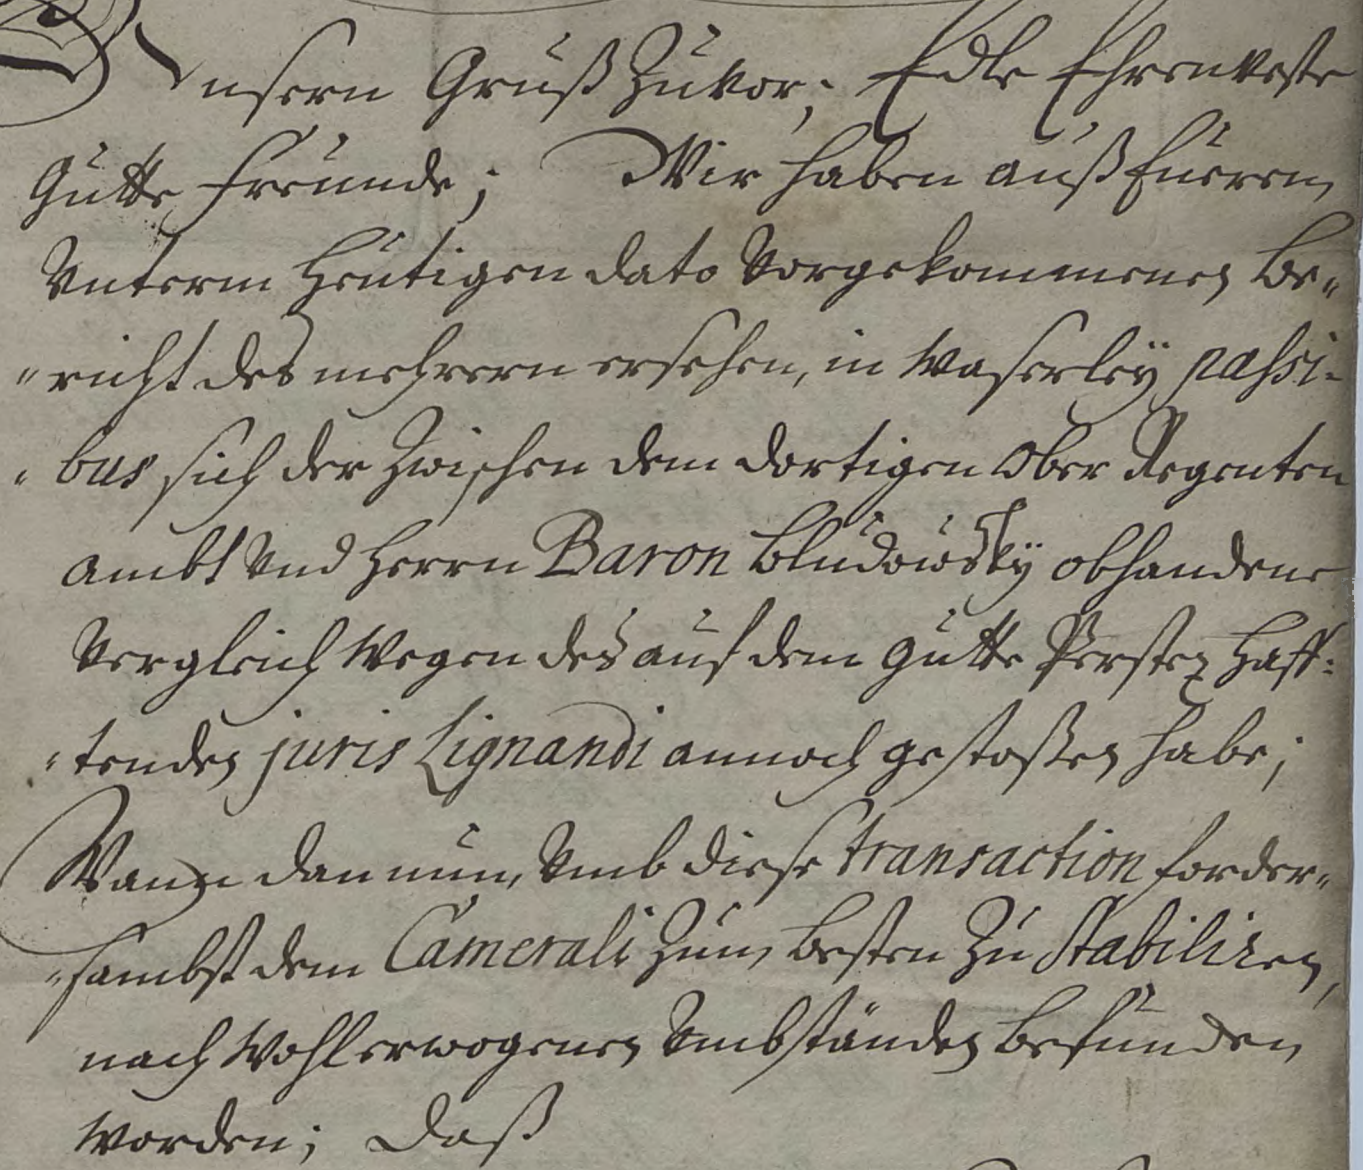 Unsern Gruß Zuvor; Edle Ehrenveste
Gutte Freunde; Wir haben auß Eueren
Unterm heutigen dato Vorgekommenen Be-
richt des mehrern ersehen, in waserley passi-
bus sich der Zwischen dem dortigen Ober Regenten
Ambt Und Herrn Baron Bludowsky obhandene
Vergleich wegen des auf dem Gutte Perstez Haff-
tenden juris Lignandi annoch gestoßen habe;
Wann dan nun, Umb diese transaction forder-
sambst dem Camerali Zum besten Zu Stabiliren,
nach wohl erwogenen Umbständen befunden
worden; Daß